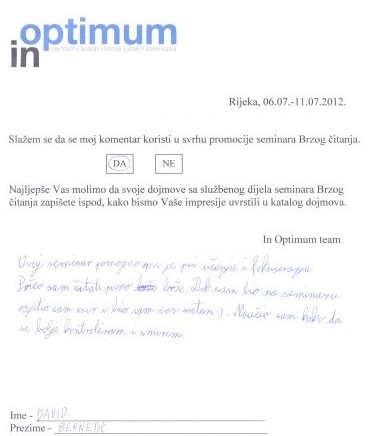 in optimum
Rijeka, 06.07.-11.07.2012.
Slažem se da se moj komentar koristi u svrhu promocije seminara Brzog čitanja.
DA NE
Najljepše Vas molimo da svoje dojmove sa službenog dijela seminara Brzog
čitanja zapišete ispod, kako bismo Vaše impresije uvrstili u katalog dojmova.
In Optimum team
Ovaj seminar pomogao mi je pri učenju i fokusiranju
Počeo sam čitati puno brže. Dok sam bio na seminaru
osjetio sam mir i bio sam sav sretan :). Naučio sam kako da
se bolje kontroliram i smirim.
Ime - DAVID
Prezime - BERNETIĆ